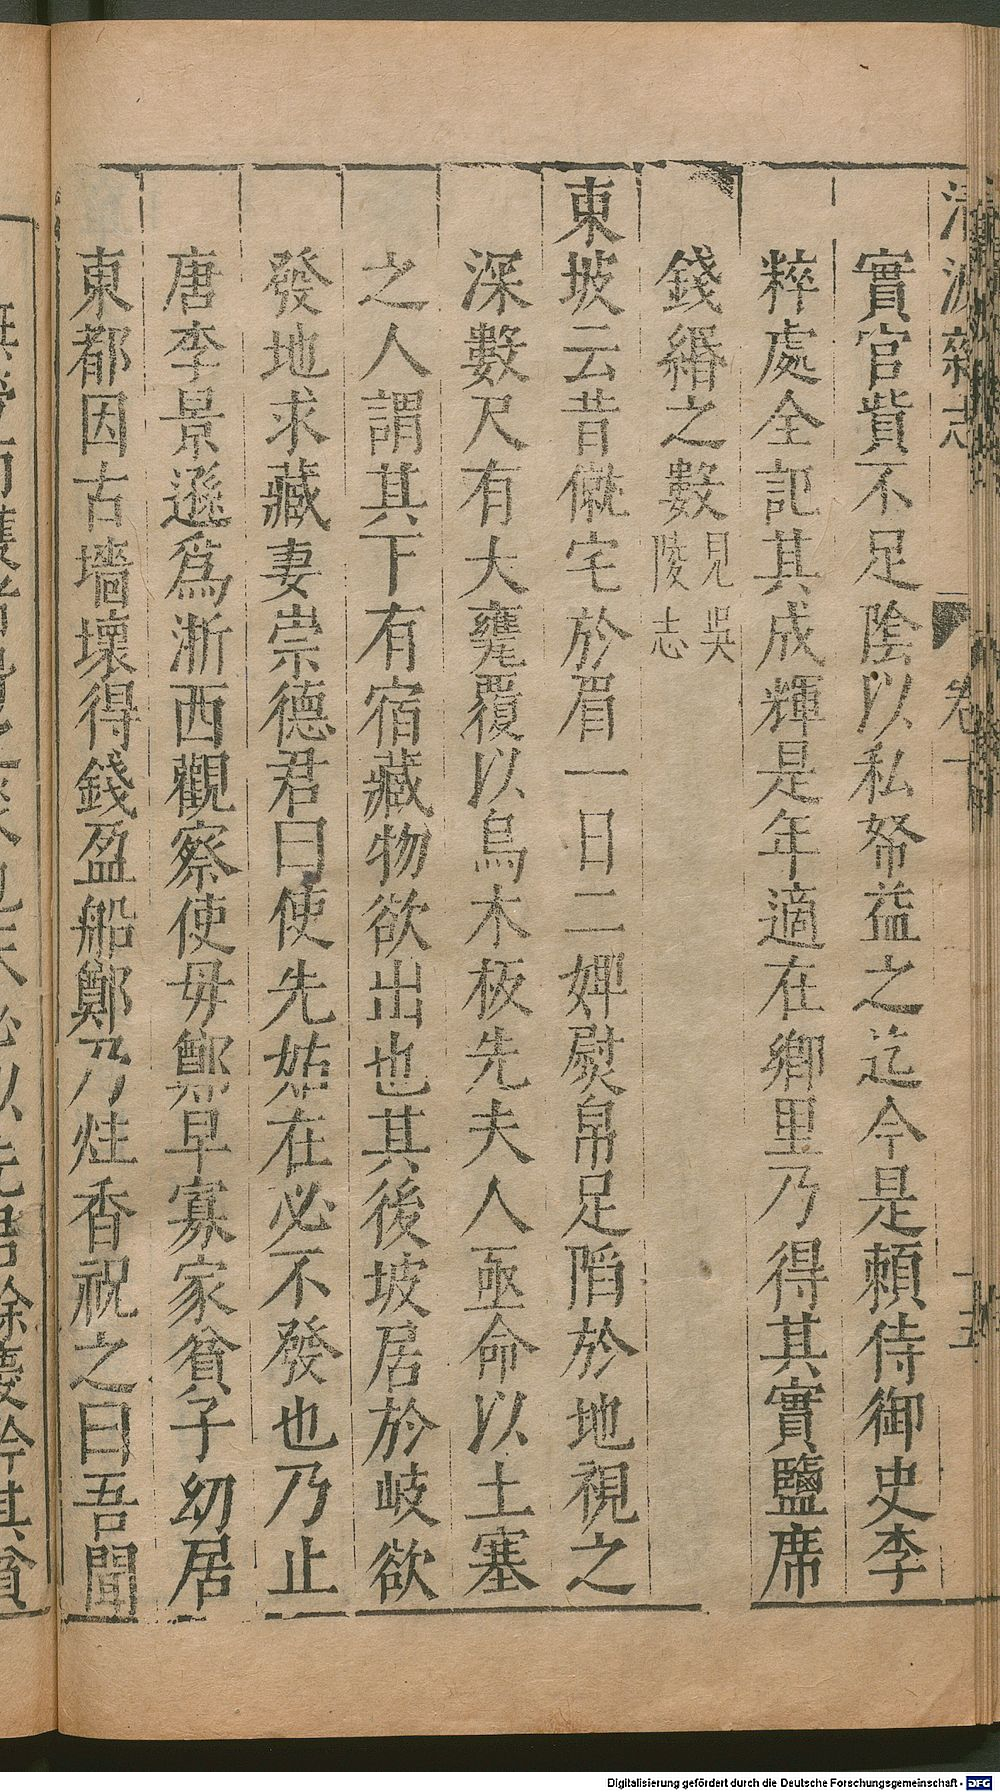 清波雜志
卷一
十五
實官貲不足陰以私帑益之迄今是賴侍御史李
粹處全記其成輝是年適在鄉里乃得其實鹽席
錢緡之數見吳
陵志
東坡云昔僦宅於眉一日二婢熨帛足陷於地視之
深數尺有大甕覆以烏木板先夫人亟命以土塞
之人謂其下有宿藏物欲出也其後坡居於岐欲
發地求藏妻崇德君曰使先姑在必不發也乃止
唐李景遜爲浙西觀察使毋鄭早寡家貧子幼居
東都因古墻壞得錢盈船鄭乃炷香祝之曰吾聞
Digitalisierung gefördert durch die Deutsche Forschungsgemeinschaft - DFG